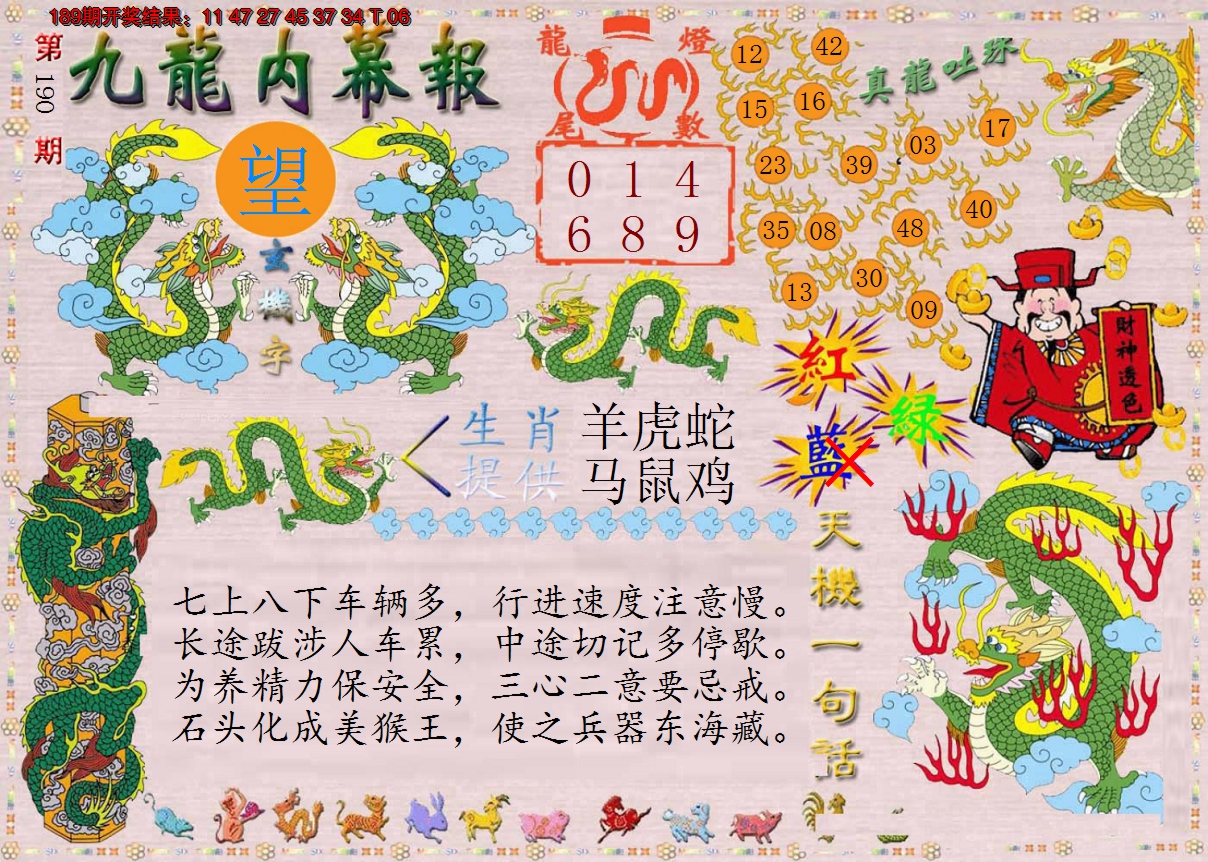 189期开奖结果：11 47 27 45 37 34 T 06
第190期
九龍内幕報
望
玄機字
龍燈
尾數
0 1 4
6 8 9
真龍吐珠
12 42
15 16
23 39 03 17
35 08 48 40
13 30 09
財神透色
紅
綠
藍
生肖 羊虎蛇
提供 马鼠鸡
天機一句話
七上八下车辆多，行进速度注意慢。
长途跋涉人车累，中途切记多停歇。
为养精力保安全，三心二意要忌戒。
石头化成美猴王，使之兵器东海藏。